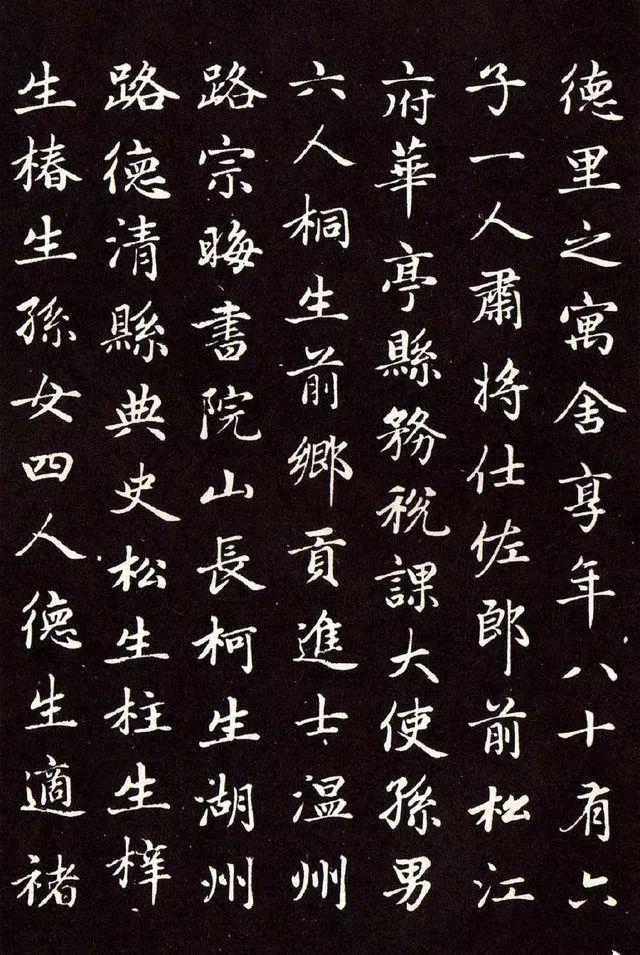 德里之寓舍享年八十有六
子一人肅将仕佐郎前松江
府華亭縣務稅課大使孫男
六人桐生前鄉貢進士温州
路宗晦書院山長柯生湖州
路德清縣典史松生柱生梓
生椿生孫女四人德生適褚